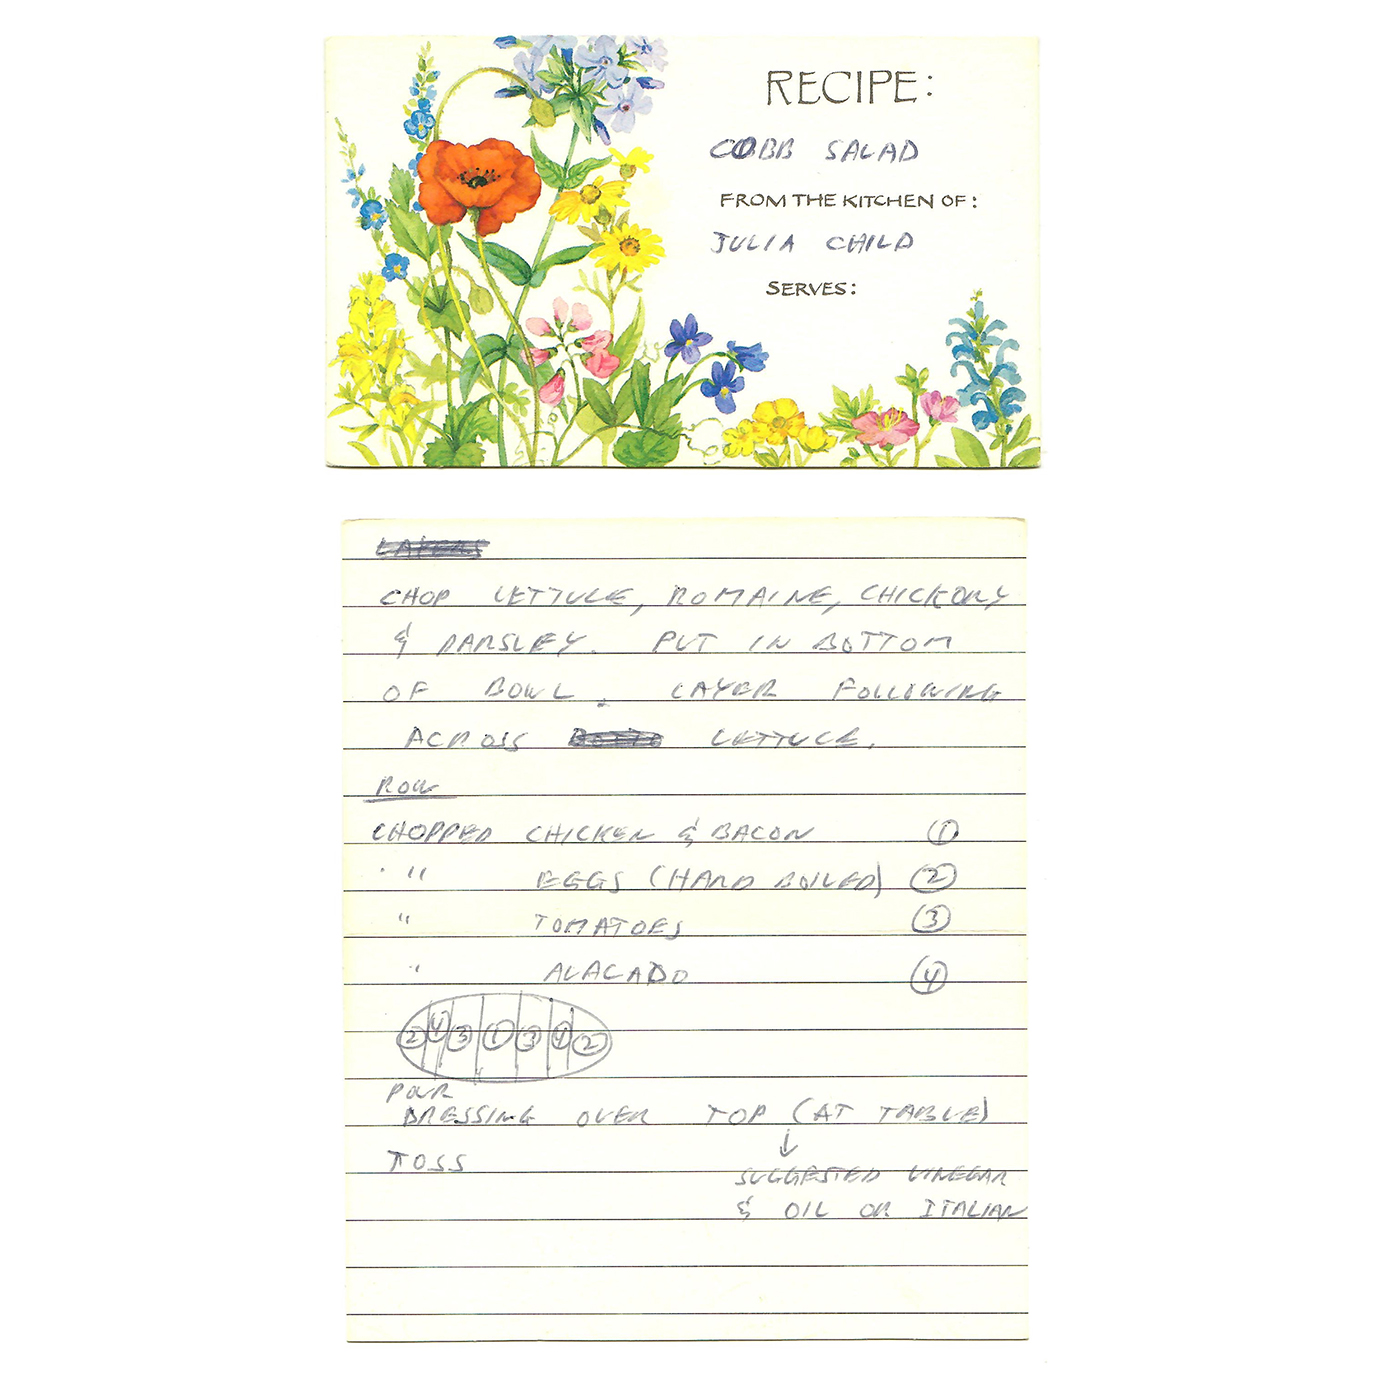 RECIPE:
COBB SALAD
FROM THE KITCHEN OF:
JULIA CHILD
SERVES:
LAYERS
CHOP LETTUCE, ROMAINE, CHICKORY
& PARSLEY. PUT IN BOTTOM
OF BOWL. LAYER FOLLOWING
ACROSS LETTUCE.
ROW
CHOPPED CHICKEN & BACON ①
" EGGS (HARD BOILED) ②
" TOMATOES ③
" AVACADO ④
② 4 ③ ① ③ ④ ②
POUR
DRESSING OVER TOP (AT TABLE)
TOSS ↓
SUGGESTED VINEGAR
& OIL OR ITALIAN